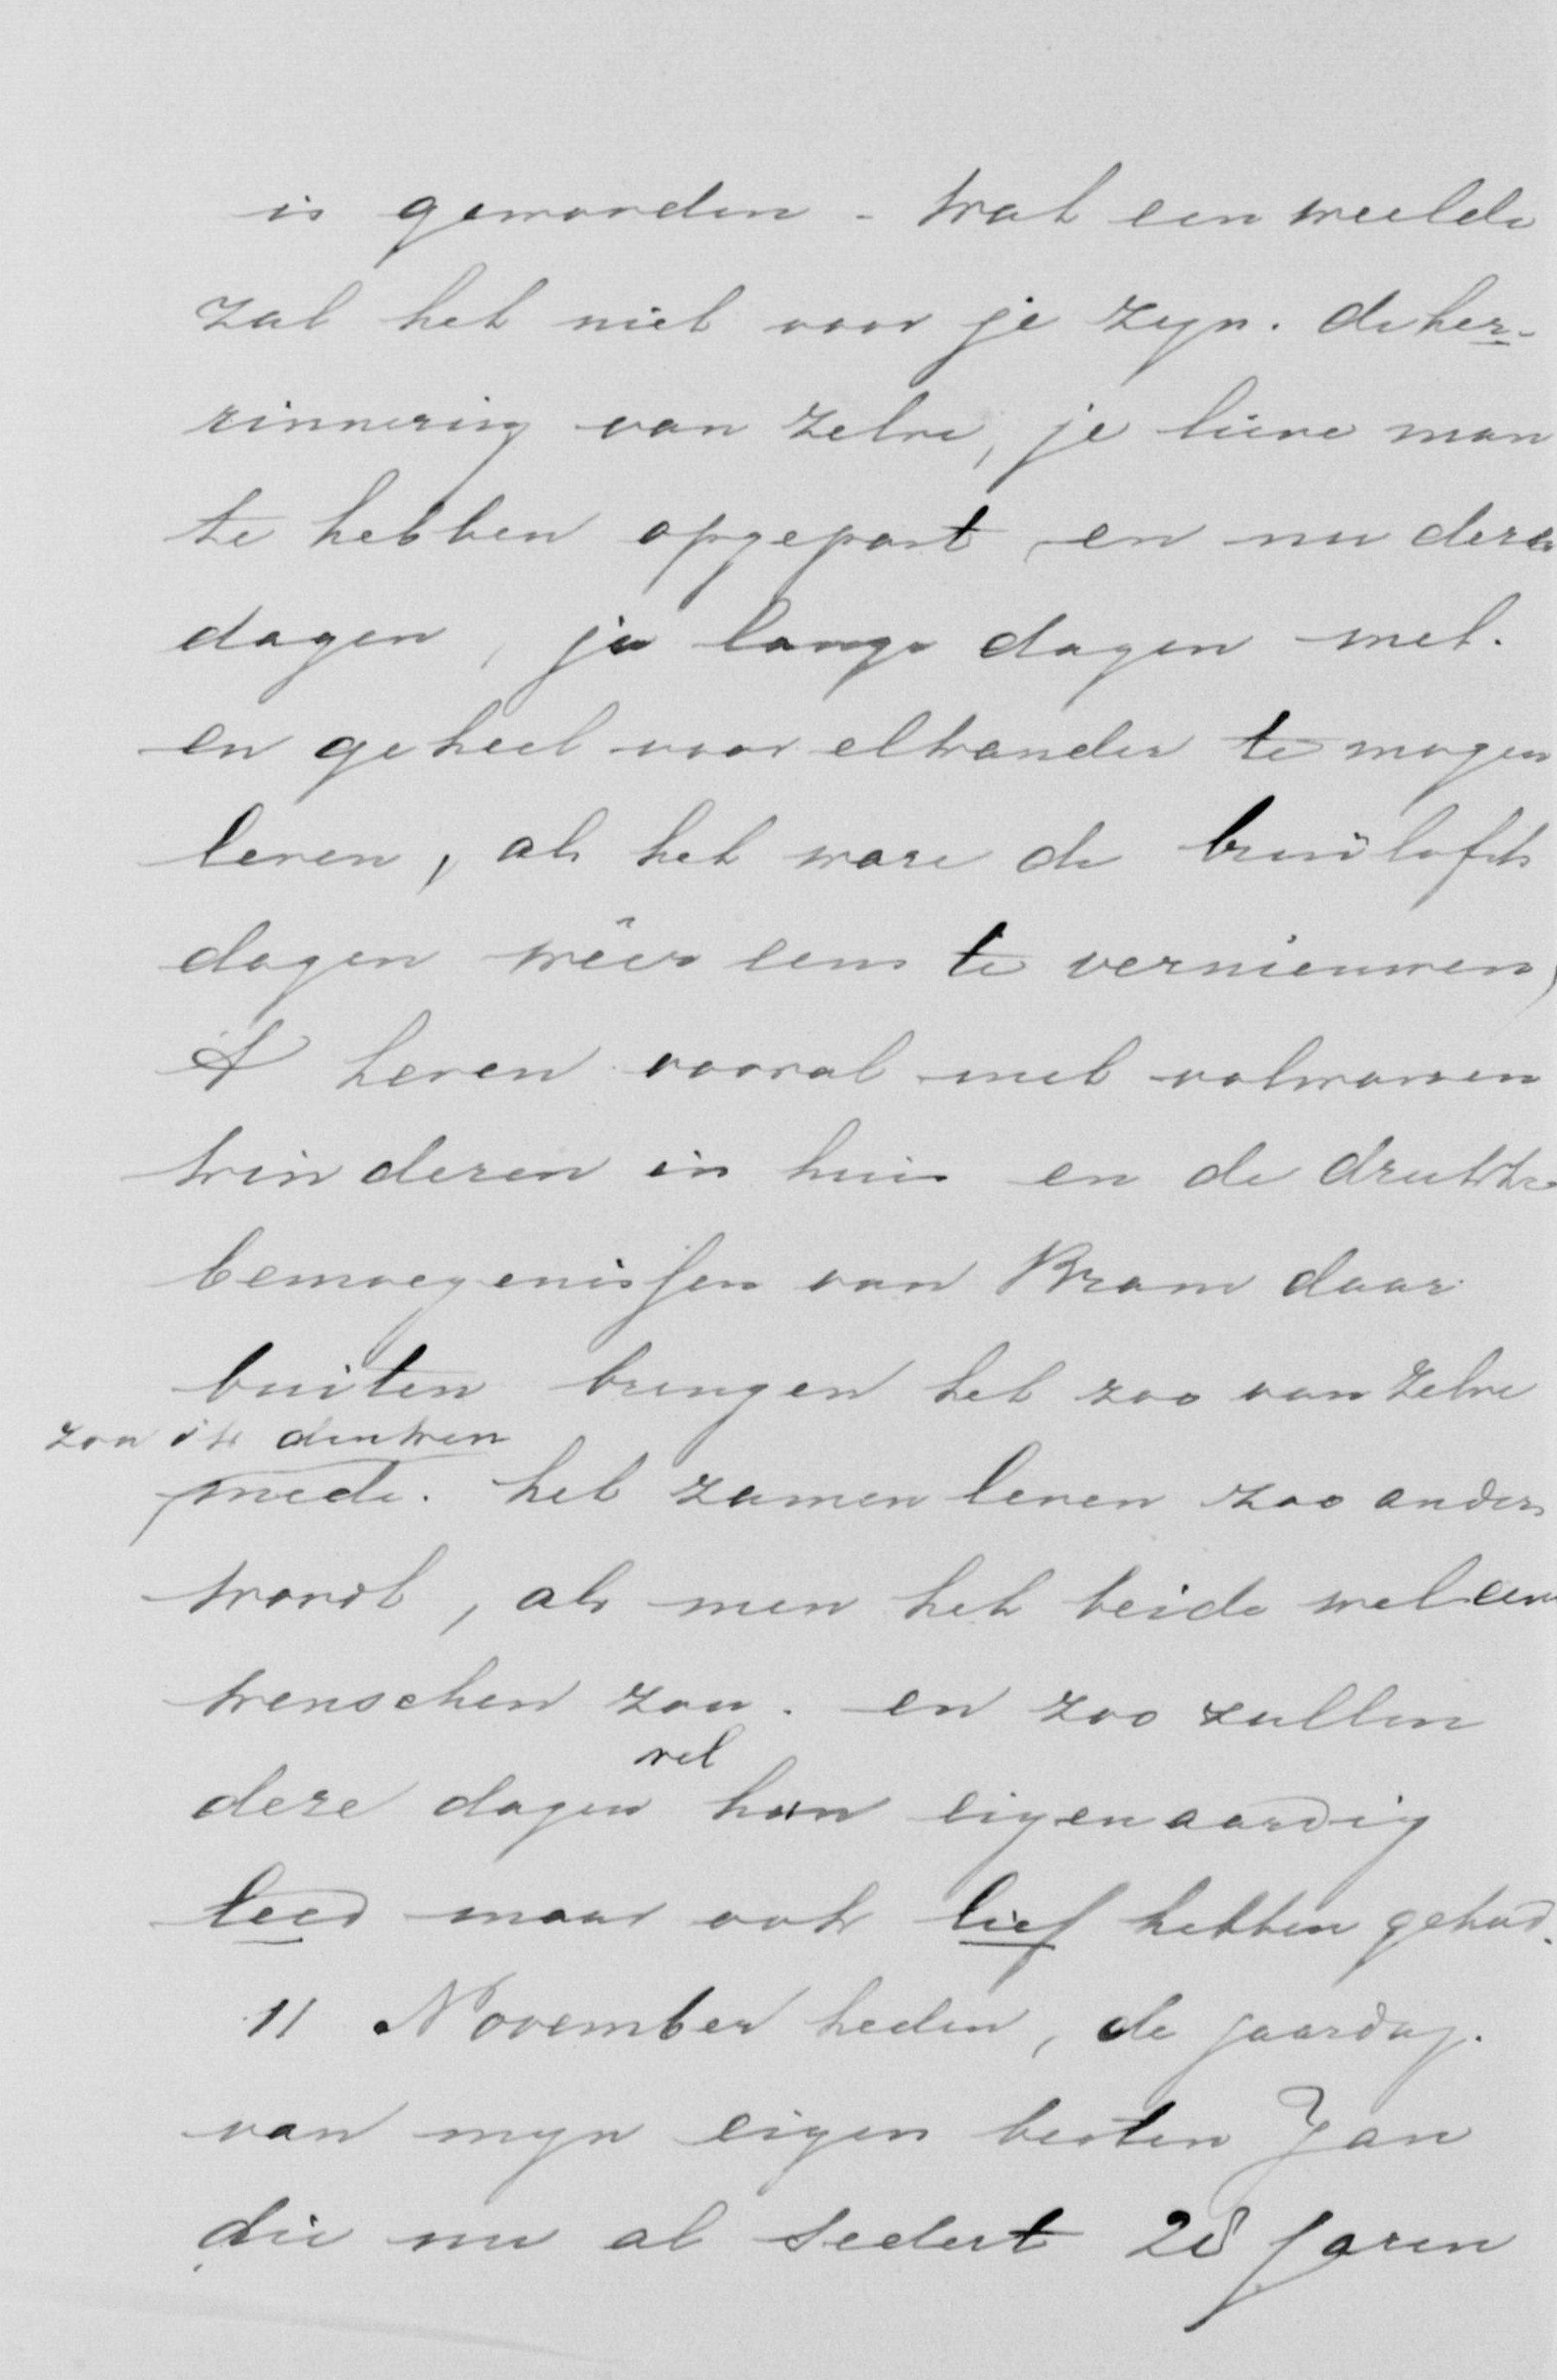 is geworden - Wat een weelde
zal het niet voor je zyn. de her-
rinnering van zelve, je lieve man
te hebben opgepast, en nu deze
dagen, ja lange dagen met.
en geheel voor elkander te mogen
leven, als het ware de bruilofts
dagen wêer eens te vernieuwen,
't leven vooral met volwassen
kinderen in huis en de drukke
bemoeyenissen van Bram daar
buiten brengen het zoo van zelve
zou ik denken
mede. het zamen leven zoo anders
wordt, als men het beide wel eens
wenschen zou. en zoo zullen
wel
deze dagen hun eigenaardig
leed maar ook lief hebben gehad.
11 November heden, de jaardag.
van myn eigen besten Jan
die nu al sedert 28 Jaren